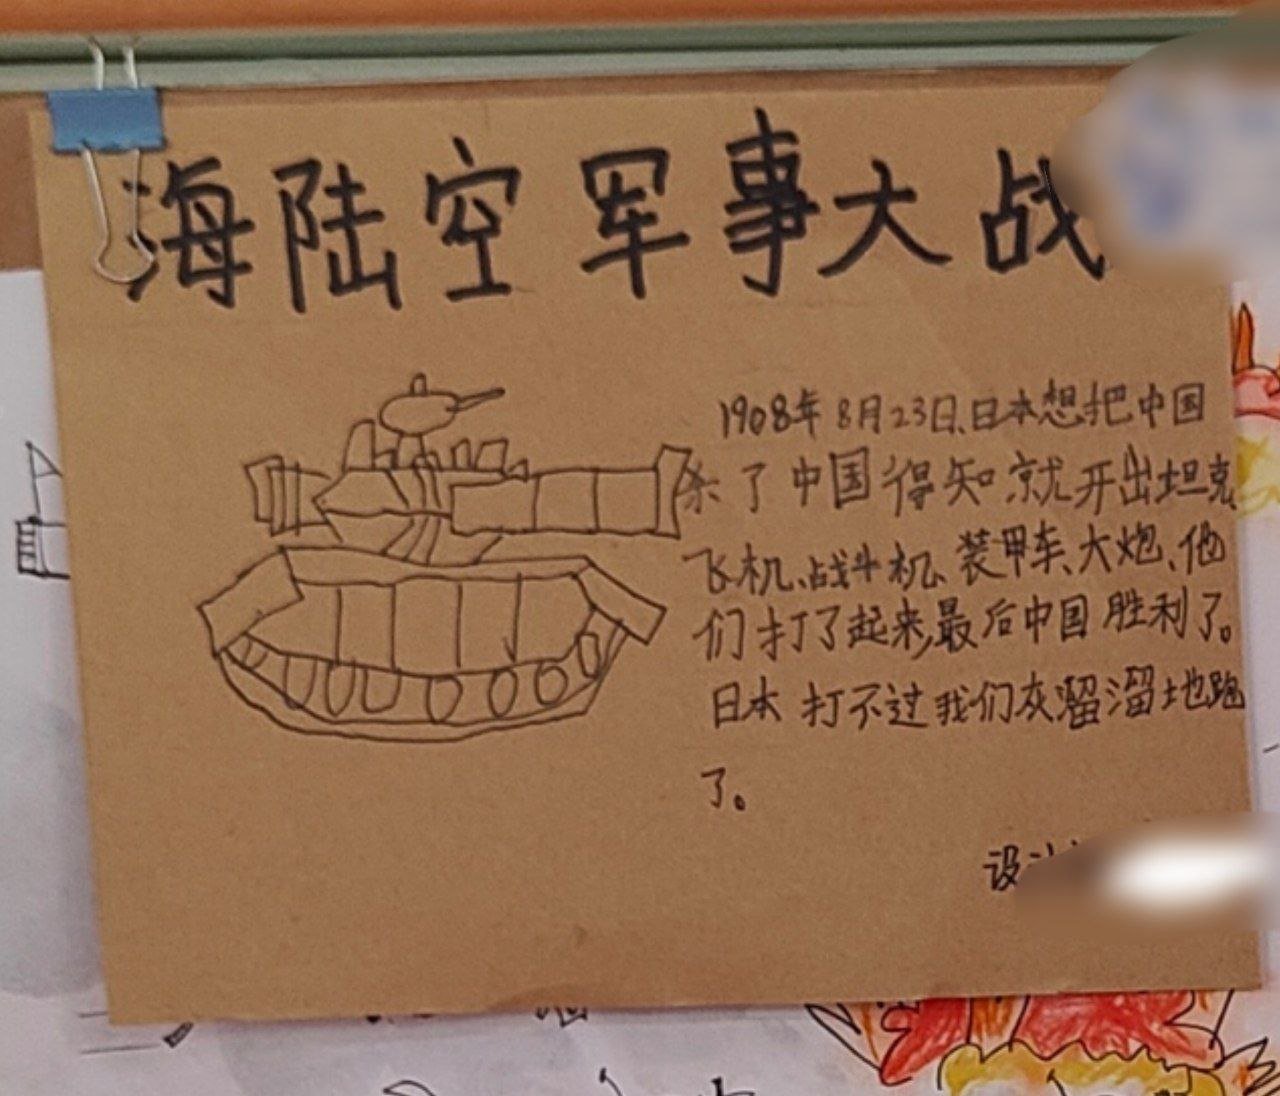 海陆空军事大战
1908年8月23日、日本想把中国
杀了中国得知就开出坦克
飞机、战斗机、装甲车、大炮、他
们打了起来,最后中国胜利了。
日本打不过我们灰溜溜地跑
了。
设计